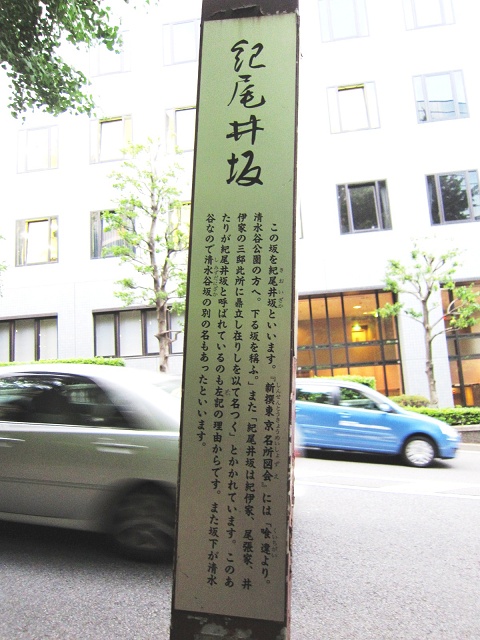 紀尾井坂
この坂を紀尾井坂といいます。『新撰東京名所図会』には「喰違より。
清水谷公園の方へ。下る坂を稱ふ。」また「紀尾井坂は紀伊家、尾張家、井
伊家の三邸此所に鼎立し在りしを以て名つく」とかかれています。このあ
たりが紀尾井坂と呼ばれているのも左記の理由からです。また坂下が清水
谷なので清水谷坂の別の名もあったといいます。